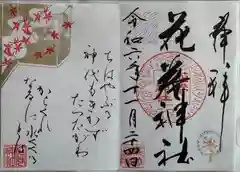 奉拝
花 神社
令和六年十一月二十四日
ちはやぶる
神代もきかず
たつたがわ
からくれ
なゐに水くゝる
とは